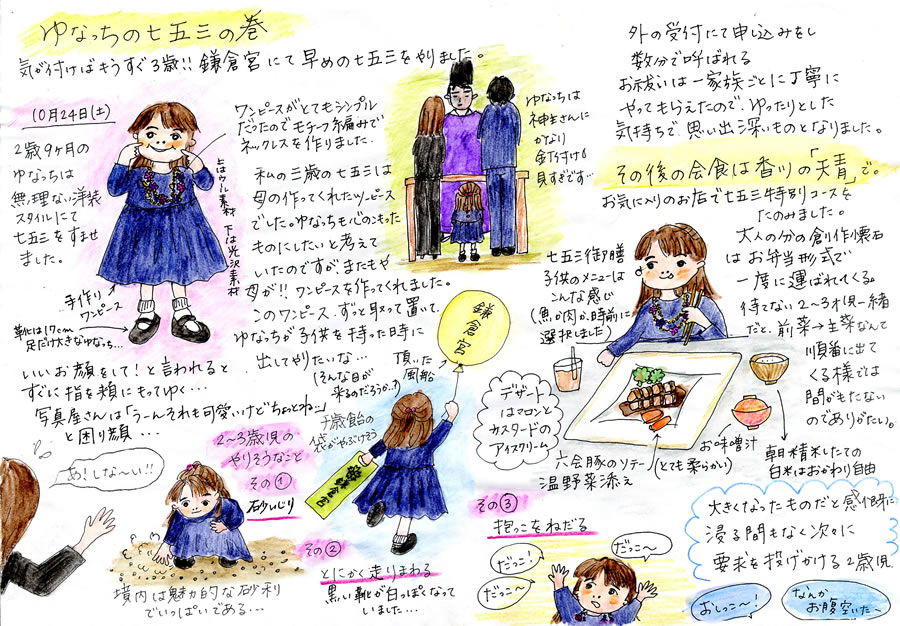 ゆなっちの七五三の巻
気が付けばもうすぐ3歳!! 鎌倉宮にて早めの七五三をやりました。
10月24日(土)
2歳9ヶ月の
ゆなっちは
無理ない洋装
スタイルにて
七五三をすませ
ました。
ワンピースがとてもシンプル
だったのでモチーフ編みで
ネックレスを作りました。
上はウール素材
下は光沢素材
手作り
ワンピース
靴は17cm
足だけ大きなゆなっち…
私の三歳の七五三は
母の作ってくれたワンピース
でした。ゆなっちも心のこもった
ものにしたいと考えて
いたのですが、またもや
母が!! ワンピースを作ってくれました。
このワンピース、ずっと取って置いて、
ゆなっちが子供を持った時に
出してやりたいな…
(そんな日が
来るのだろうか?)
いいお顔をして!と言われると
すぐに指を頬にもってゆく…
写真屋さんは「うーんそれも可愛いけどちょっとね…」
と困り顔…
ゆなっちは
神主さんに
かなり
釘付け
です…
外の受付にて申し込みをし
数分で呼ばれる
お祓いは一家族ごとに丁寧に
やってもらえたので、ゆったりとした
気持ちで、思い出深いものとなりました。
その後の会食は香川の「天青」で。
お気に入りのお店で七五三特別コースを
たのみました。
七五三御膳
子供のメニューは
こんな感じ
(魚か肉か、時前に
選択しました)
大人の分の創作懐石
はお弁当形式で
一度に運ばれてくる。
待てない2〜3才児一緒
だと、前菜→主菜なんて
順番に出て
くる様では
間がもたない
のでありがたい。
デザート
はマロンと
カスタードの
アイスクリーム
六会豚のソテー
温野菜添え
(とても柔らかい)
お味噌汁
朝精米したての
白米はおかわり自由
鎌倉宮
頂いた
風船
千歳飴の
袋がやぶけそう
鎌倉宮
2〜3歳児の
やりそうなこと
その①
砂いじり
あ!しな〜い!!
境内は魅力的な砂利
でいっぱいである…
その②
とにかく走りまわる
黒い靴が白っぽくなって
いました…
その③
抱っこをねだる
だっこ!
だっこ〜
だっこ〜
大きくなったものだと感傷に
浸る間もなく次々に
要求を投げかける2歳児
おしっこ〜!
なんか
お腹空いた〜